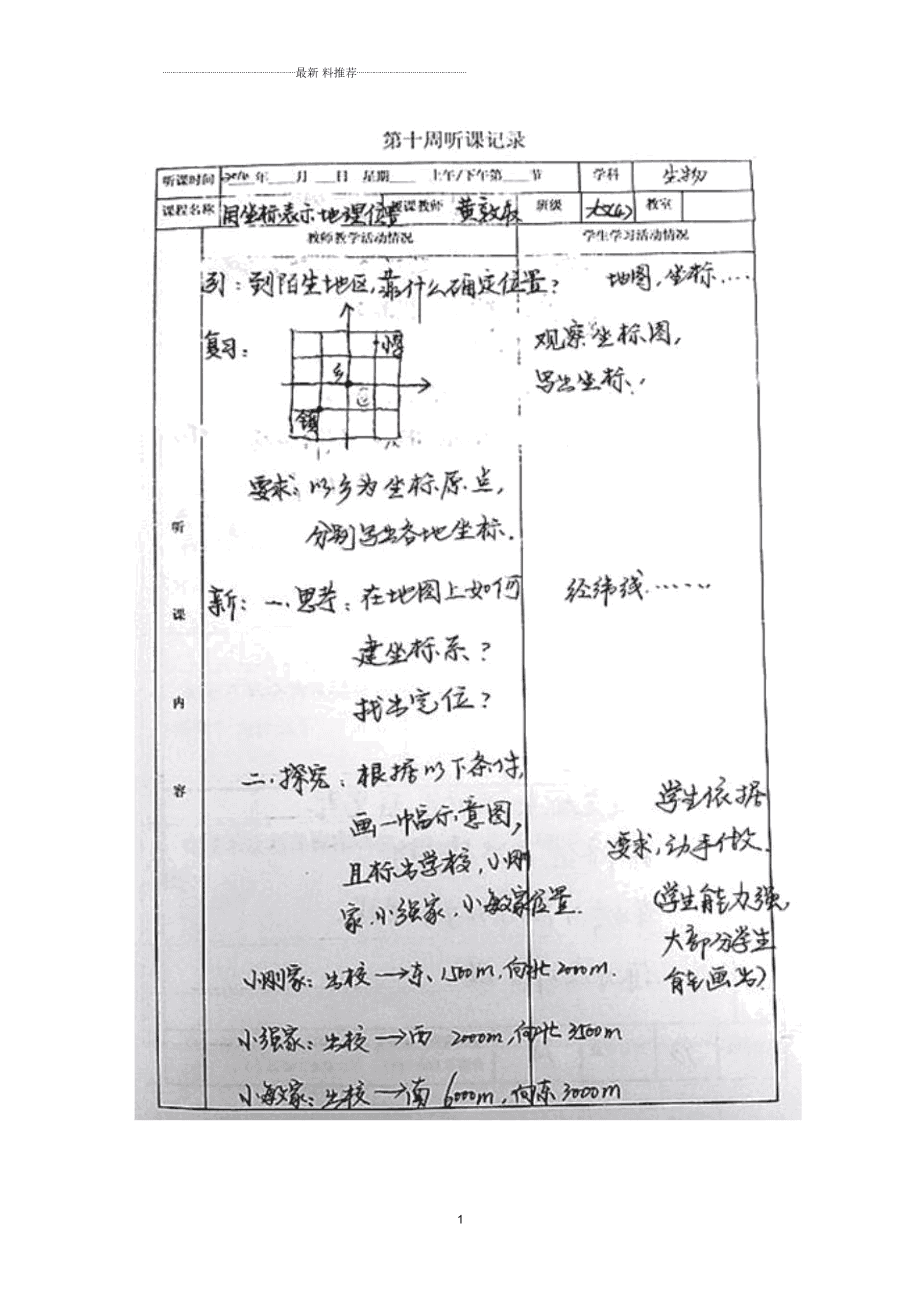 最新 料推荐
第十周听课记录
听课时间 年 月 日 星期 上午/下午第 节 学科 生物
课程名称 用坐标表示地理位置 授课教师 班级 教室
教师教学活动情况 学生学习活动情况
引：到陌生地区，靠什么确定位置？ 地图，坐标……
复习： 观察坐标图，
写出坐标．
乡
镇
要求：以乡为坐标原点，
分别写出各地坐标．
听课内容
新：一．思考：在地图上如何 经纬线……
建坐标系？
找出定位？
二．探究：根据以下条件， 学生依据
画一幅示意图， 要求，动手做．
且标出学校，小刚 （学生能力强，
家．小强家．小敏家位置． 大部分学生
小刚家：出校→东1500m，向北2000m． 能画出）．
小强家：出校→西 2000m，向北3500m
小敏家：出校→南 6000m，向东3000m
1